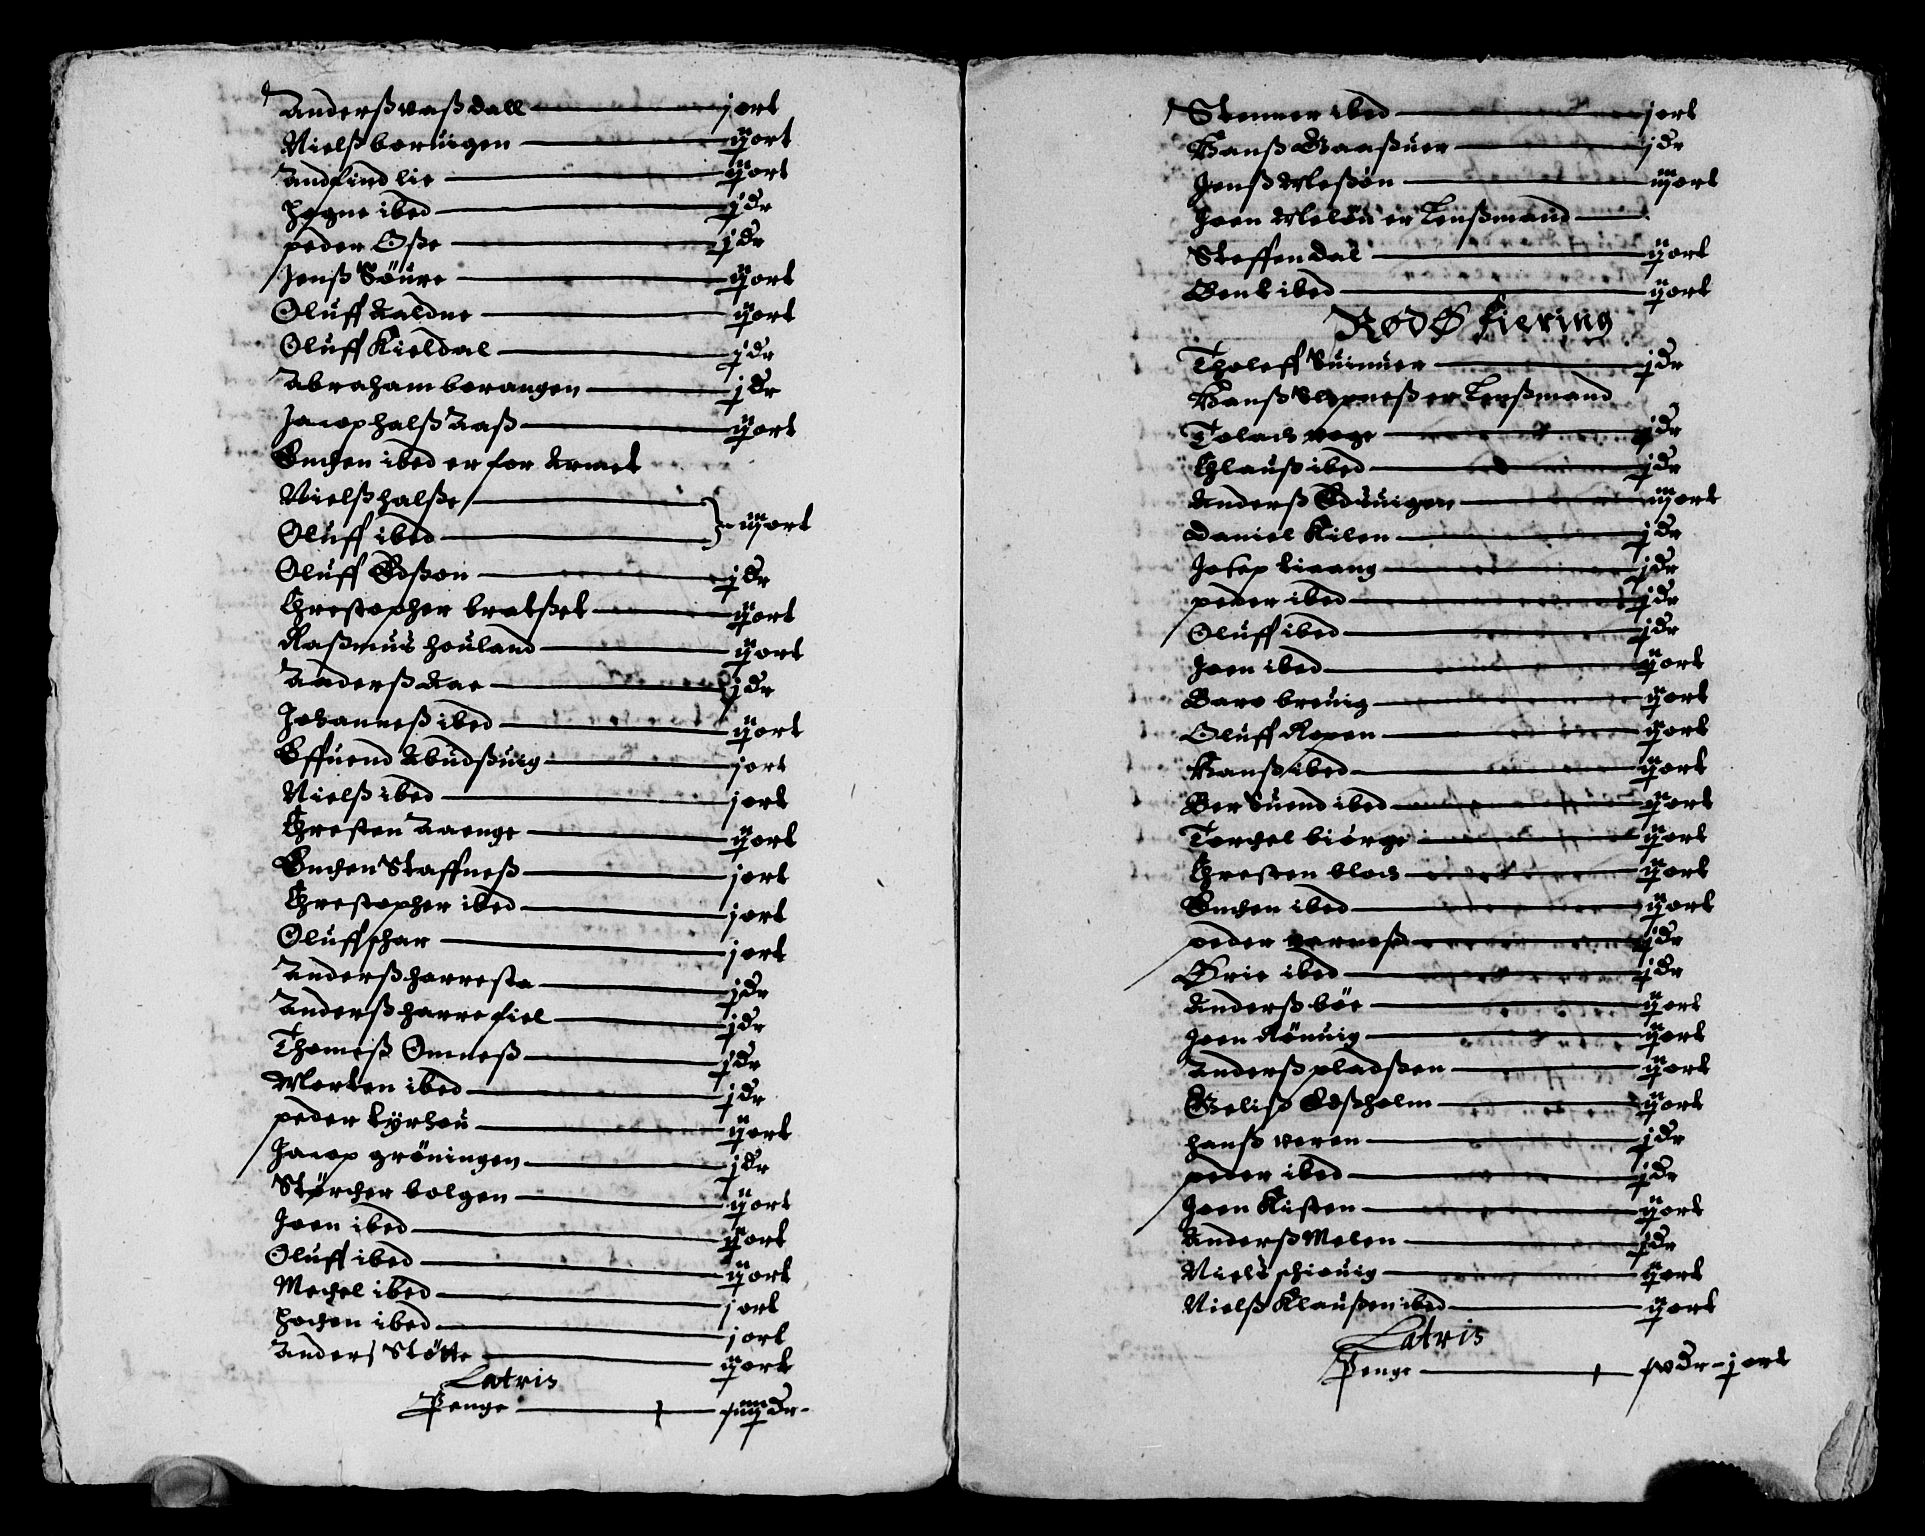 Anderß vaßdall — j ort
Nielß boruigen — ij ort
Andfind lie — ij ort
Hogne ibed — j dr
peder Oße — j dr
Jenß Söure — ij ort
Oluff Aaldne — ij ort
Oluff Kieldal — j dr
Abraham berangen — j dr
Jacop halß Aaß — ij ort
Enchen ibed er for Armet
Nielß halße —
Oluff ibed — } iij ort
Oluff Edßon — j dr
Chrestopher bratßet — ij ort
Raßmus houland — ij ort
Anderß Aae — j dr
Johanneß ibed — ij ort
Effuend Abudßuig — j ort
Nielß ibed — j ort
Chresten Aaenge — ij ort
Enchen Staffneß — j ort
Chrestopher ibed — j ort
Oluff schar — j ort
Anderß harresta — j dr
Anderß harrefiel — j dr
Thomeß Omneß — j dr
Morten ibed — j dr
peder kyrhou — ij ort
Jacop gröningen — j dr
Størcher bolgen — ij ort
Joen ibed — ij ort
Oluff ibed — ij ort
Mechel ibed — j ort
Hochen ibed — j ort
Anders Støtte — ij ort
Latris
Penge — xiiij dr
Stenner ibed — j ort
Hanß Gaaßuer — j dr
Jenß Meßön — iij ort
Joen Meløu er Lenßmand —
Steffen dal — ij ort
Bent ibed — ij ort
RødØ fiering
Tholeff Suinuer — j dr
Hanß Sleppneß er Lenßmand
Tolach voge — j dr
Chlauß ibed — j dr
Anderß Eduuigen — iij ort
Daniel Kilen — j dr
Josep kiaang — j dr
peder ibed — j dr
Oluff ibed — j dr
Joen ibed — ij ort
Baro breuig — ij ort
Oluff Ropen — ij ort
Hanß ibed — ij ort
Ber Suend ibed — ij ort
Torchel biørge — ij ort
Chresten bloch — ij ort
Enchen ibed — ij ort
peder varneß — j dr
Ørie ibed — j dr
Anderß böe — ij ort
Joen Rönuig — ij ort
Anderß pladßen — ij ort
Geliß Edßholm — ij ort
hanß veren — j dr
peder ibed — j dr
Joen Kisten — ij ort
Anderß Melen — j dr
Niels schiouig — ij ort
Nielß Klaußen ibed — ij ort
Latris
Penge — xv dr — j ort